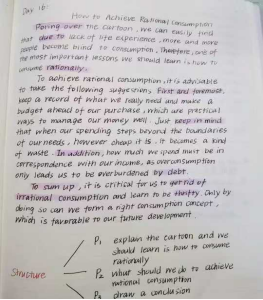 Day 16:
How to Achieve Rational Consumption
Poring over the cartoon, we can easily find
that due to lack of life experience, more and more
people become blind to consumption. Therefore, one of
the most important lessons we should learn is how to
consume rationally.
To achieve rational consumption, it is advisable
to take the following suggestions. First and foremost,
keep a record of what we really need and make a
budget ahead of our purchase, which are practical
ways to manage our money well. Just keep in mind
that when our spending steps beyond the boundaries
of our needs, however cheap it is, it becomes a kind
of waste. In addition, how much we spend must be in
correspondence with our income, as overconsumption
only leads us to be overburdened by debt.
To sum up, it is critical for us to get rid of
irrational consumption and learn to be thrifty. Only by
doing so can we form a right consumption concept,
which is favorable to our future development.
P1 explain the cartoon and we
should learn how to consume
rationally
Structure P2 what should we do to achieve
rational consumption
P3 draw a conclusion